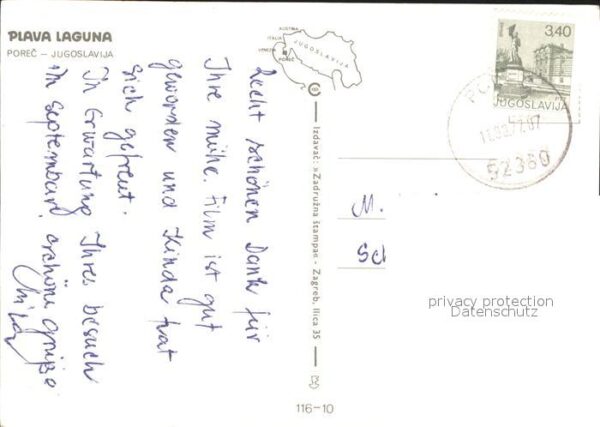 PLAVA LAGUNA
POREČ – JUGOSLAVIJA
AUSTRIA
ITALIA
VENEZIA
POREČ
JUGOSLAVIJA
Recht schönen Dank für
Ihre mühe. Film ist gut
geworden und Kinda hat
sich gefreut.
In Erwartung Ihres besuch
im septembar, schöne grüße
Izdavač: »Zadružna štampa« - Zagreb, Ilica 35
116-10
3,40
JUGOSLAVIJA
52360
M.
Sch
privacy protection
Datenschutz